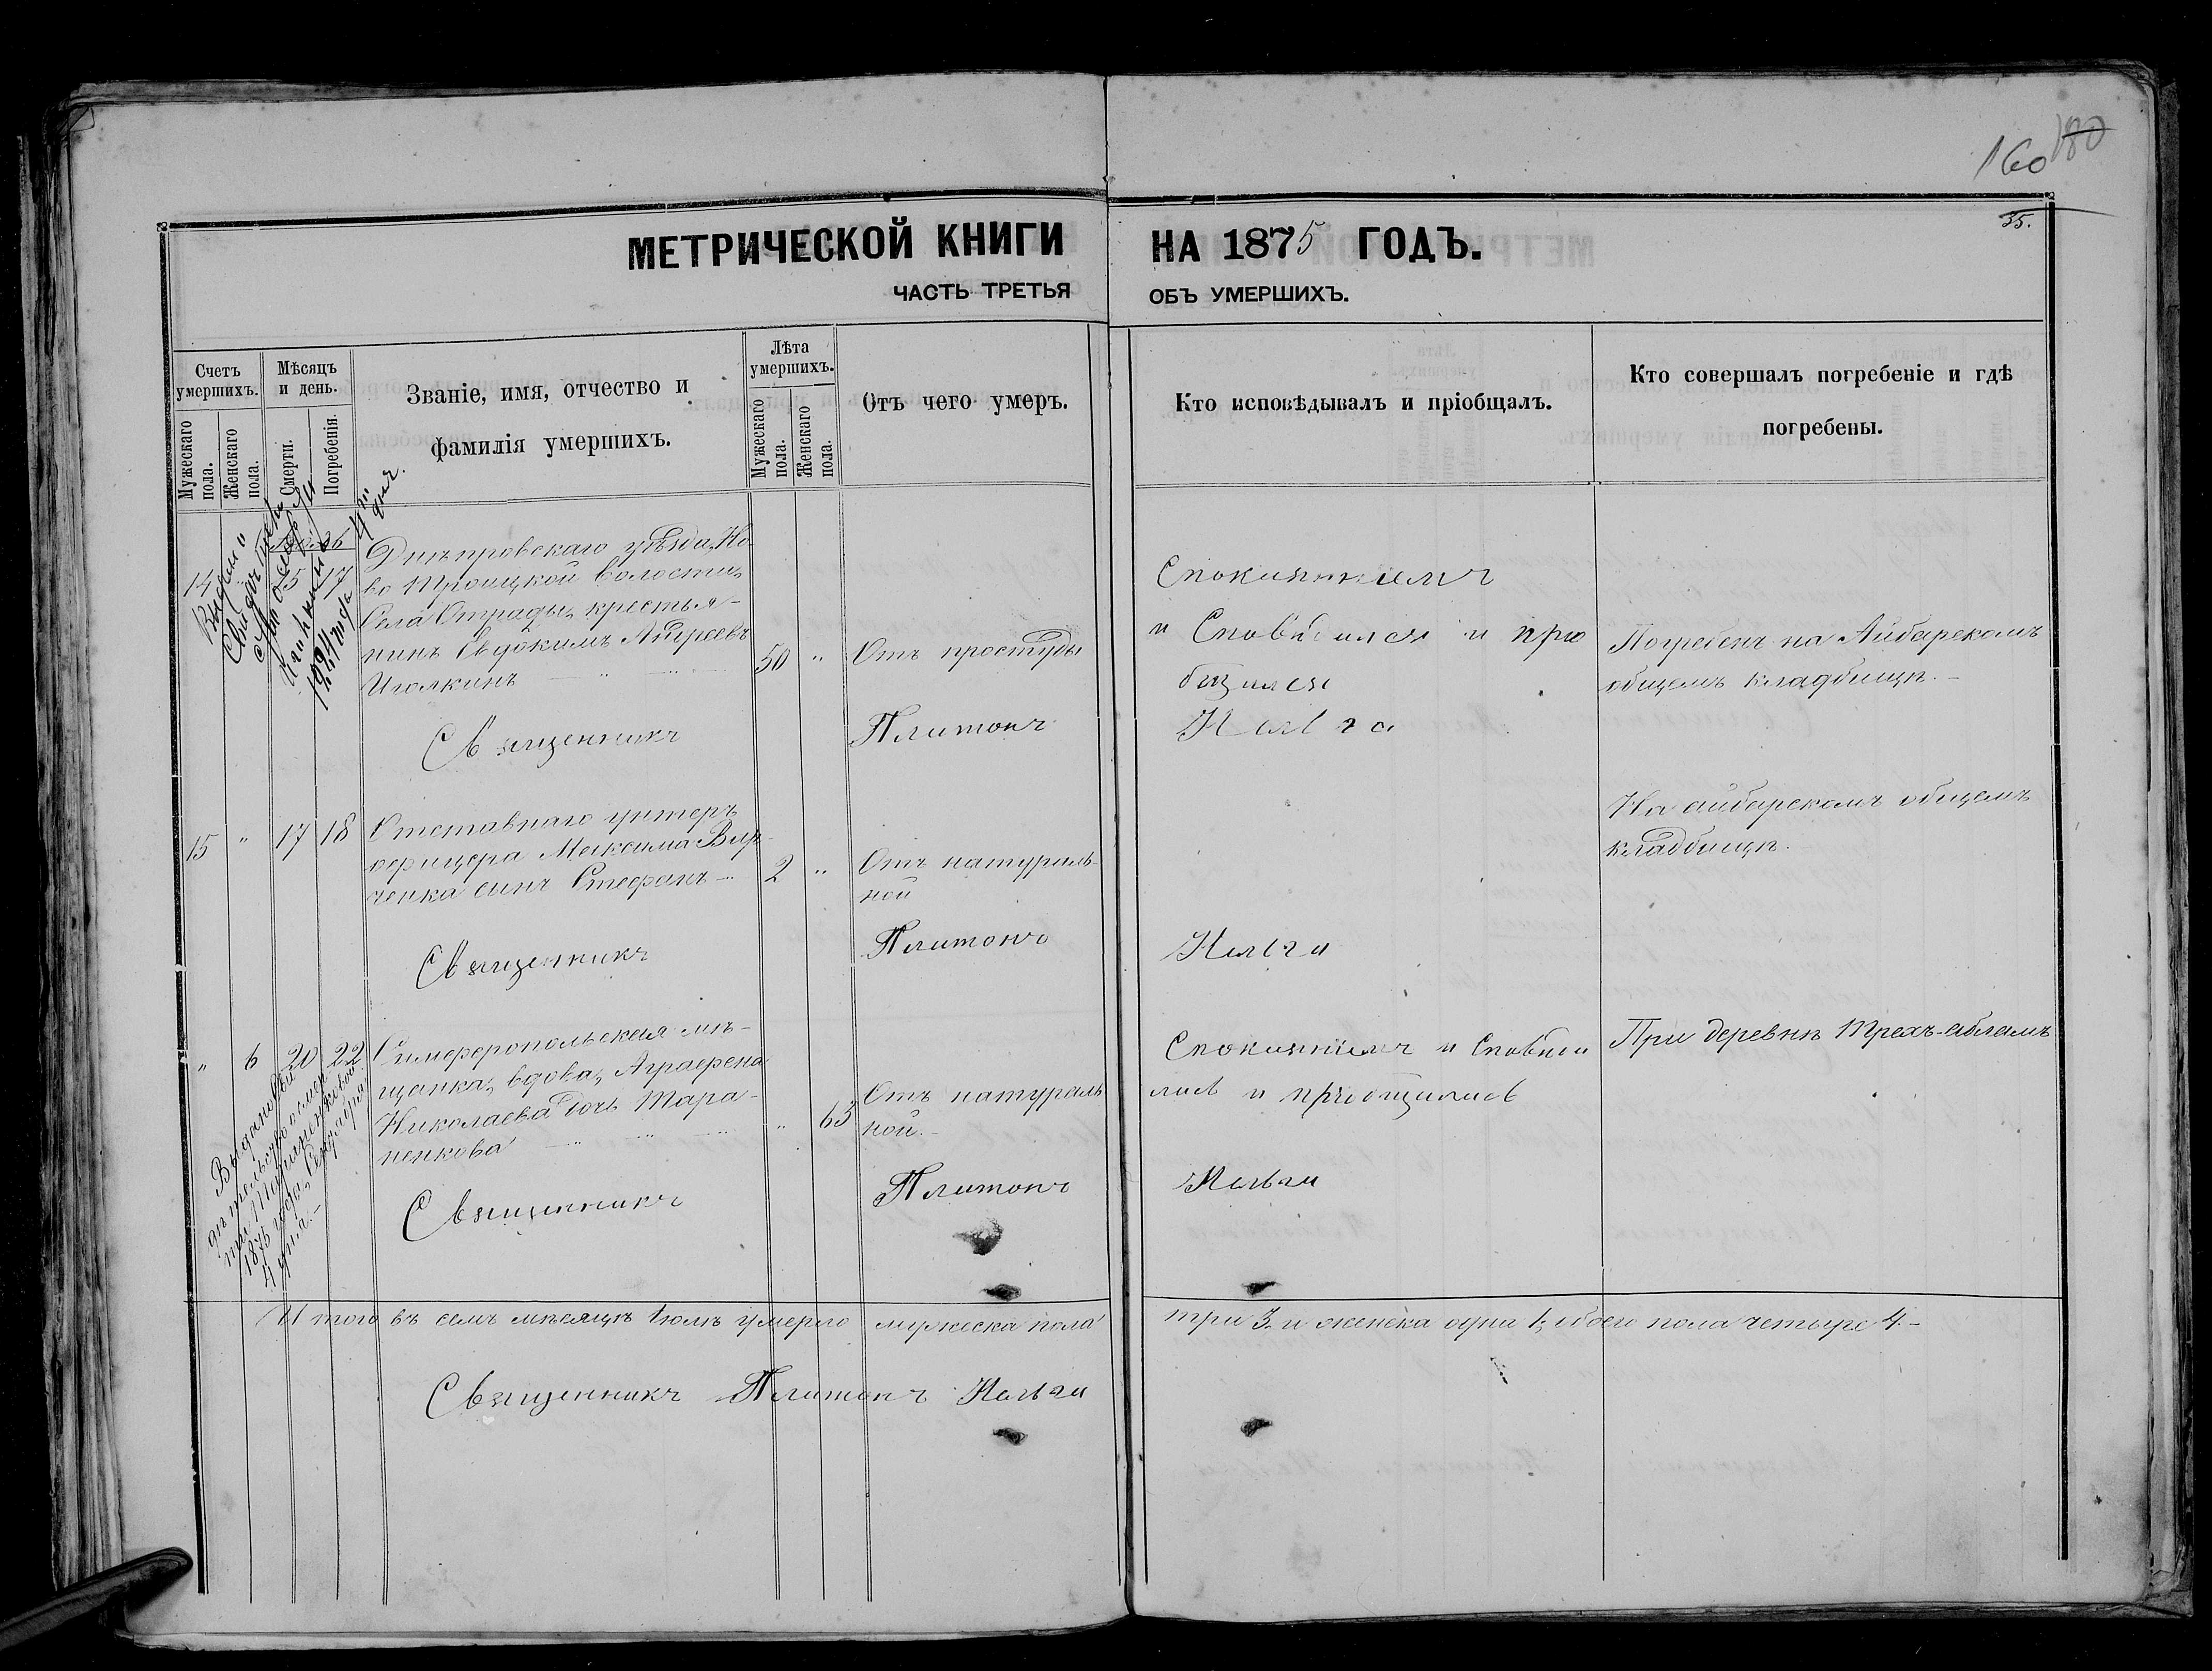 160 180
35.
МЕТРИЧЕСКОЙ КНИГИ НА 1875 ГОДЪ.
ЧАСТЬ ТРЕТЬЯ ОБЪ УМЕРШИХЪ.
Счетъ умершихъ.
Мужескаго пола.
Женскаго пола.
Мѣсяцъ и день.
Смерти.
Погребенія.
Званіе, имя, отчество и
фамилія умершихъ.
Лѣта умершихъ.
Мужескаго пола.
Женскаго пола.
Отъ чего умеръ.
Кто исповѣдывалъ и пріобщалъ.
Кто совершалъ погребеніе и гдѣ
погребены.
14 15 17
Днѣпровскаго уѣзда, Но-
во Троицкой волости,
Села Отрады, крестья-
нинъ Евдокимъ Андреевъ
Иголкинъ
50 "
Отъ простуды
и Сповѣдался и прио
бщался
Погребенъ на Айбарскомъ
общемъ кладбищѣ.-
Священникъ Платонъ
15 " 17 18
Отставнаго унтеръ
офицера Максима
ченка сынъ Стефанъ
2 "
Отъ натураль-
ной
На айбарскомъ общемъ
кладбищѣ.
Священникъ Платонъ
" 6 20 22
Симферопольская мѣ-
щанка, вдова, Аграфена
Николаева дочь Тара-
ненкова
" 63
Отъ натураль
ной.-
лась и приобщилась
При деревнѣ Трехъ-абламъ
1876 года,
4 дня.-
Священникъ Платонъ
И того въ семъ мѣсяцѣ Іюлѣ умерло мужеска пола три 3 и женска одна 1, обоего пола четыре 4.-
Священникъ Платонъ